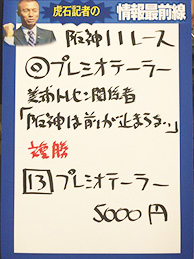 虎石記者の
情報最前線
阪神11レース
◎プレミオテーラー
美浦トレセン関係者
「阪神は前が止まらない」
複勝
13プレミオテーラー
5000円